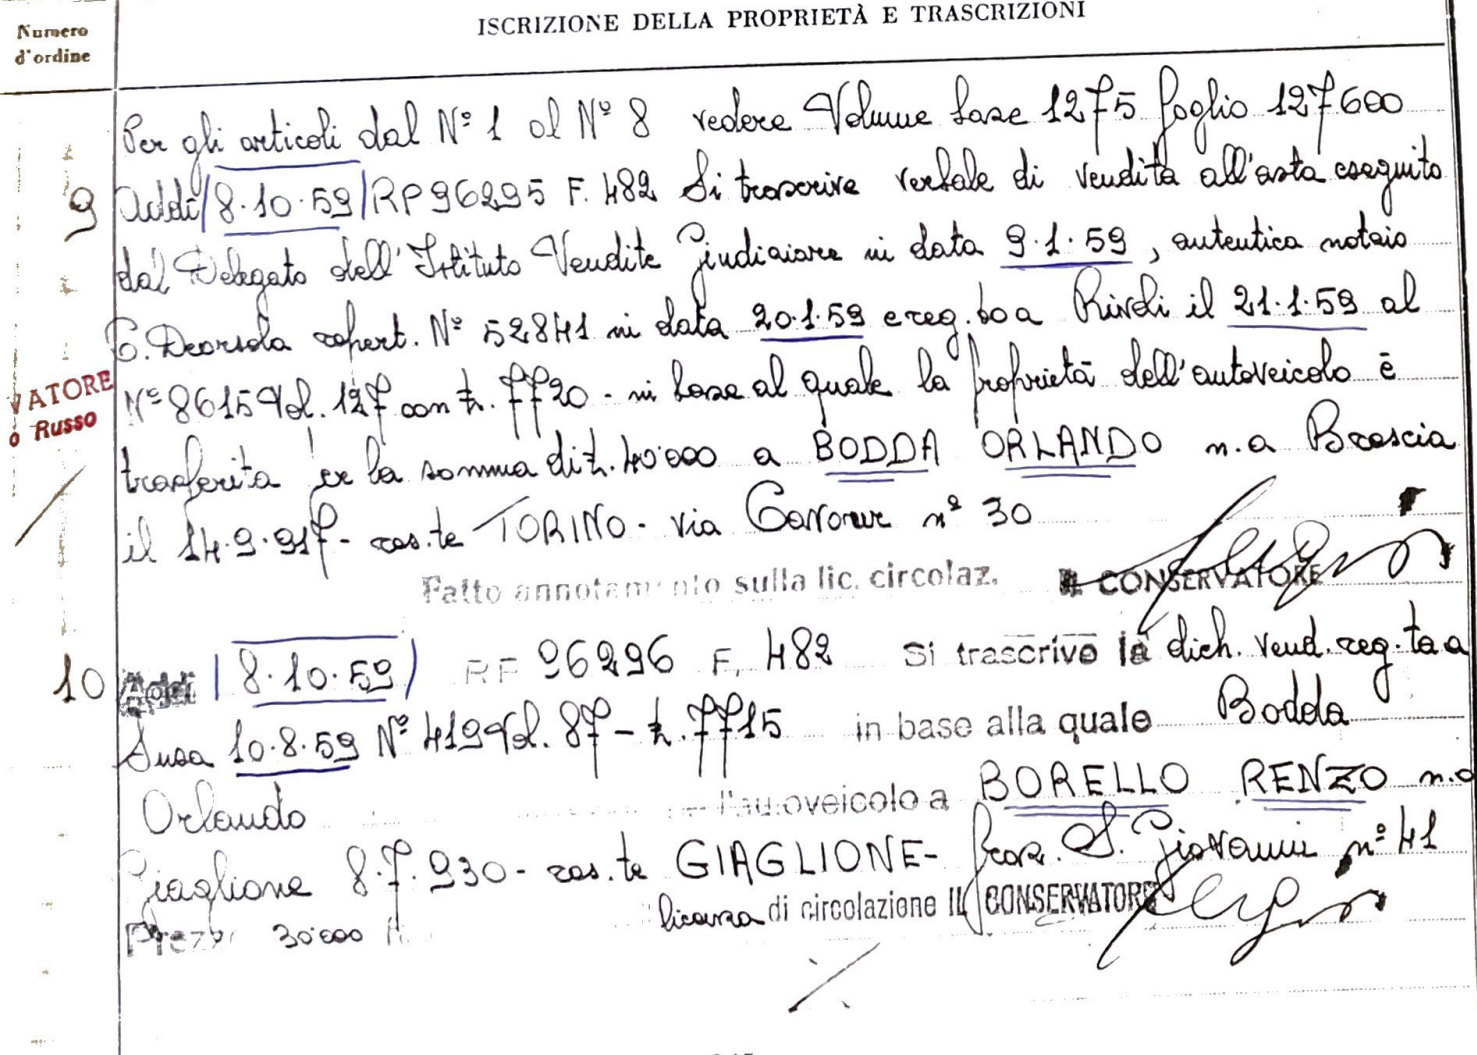 Numero
d'ordine
ISCRIZIONE DELLA PROPRIETÀ E TRASCRIZIONI
Per gli articoli dal Nº 1 al Nº 8 vedere Volume base 1275 foglio 127600
9 Addì 8.10.59 RP 96295 F. 482 Si trascrive verbale di vendita all'asta eseguito
dal Delegato dell'Istituto Vendite Giudiziare in data 9.1.59, autentica notaio
C. Deorsola repert. Nº 52841 in data 20.1.59 e reg.to a Rivoli il 21.1.59 al
Nº 8615 Vol. 127 con £. 7720 - in base al quale la proprietà dell'autoveicolo è
VATORE
o Russo
trasferita per la somma di £. 40'000 a BODDA ORLANDO n. a Brescia
il 14.9.917 - res.te TORINO - via Cavour nº 30
Fatto annotamento sulla lic. circolaz. IL CONSERVATORE
10 Addì 8.10.59 RP 96296 F. 482 Si trascrive la dich. vend. reg.ta a
Susa 10.8.59 Nº 419 Vol. 87 - £. 7715 in base alla quale Bodda
Orlando l'autoveicolo a BORELLO RENZO n. a
Giaglione 8.7.930 - res.te GIAGLIONE - fraz. S. Giovanni nº 41
Prezzo 30'000 licenza di circolazione IL CONSERVATORE